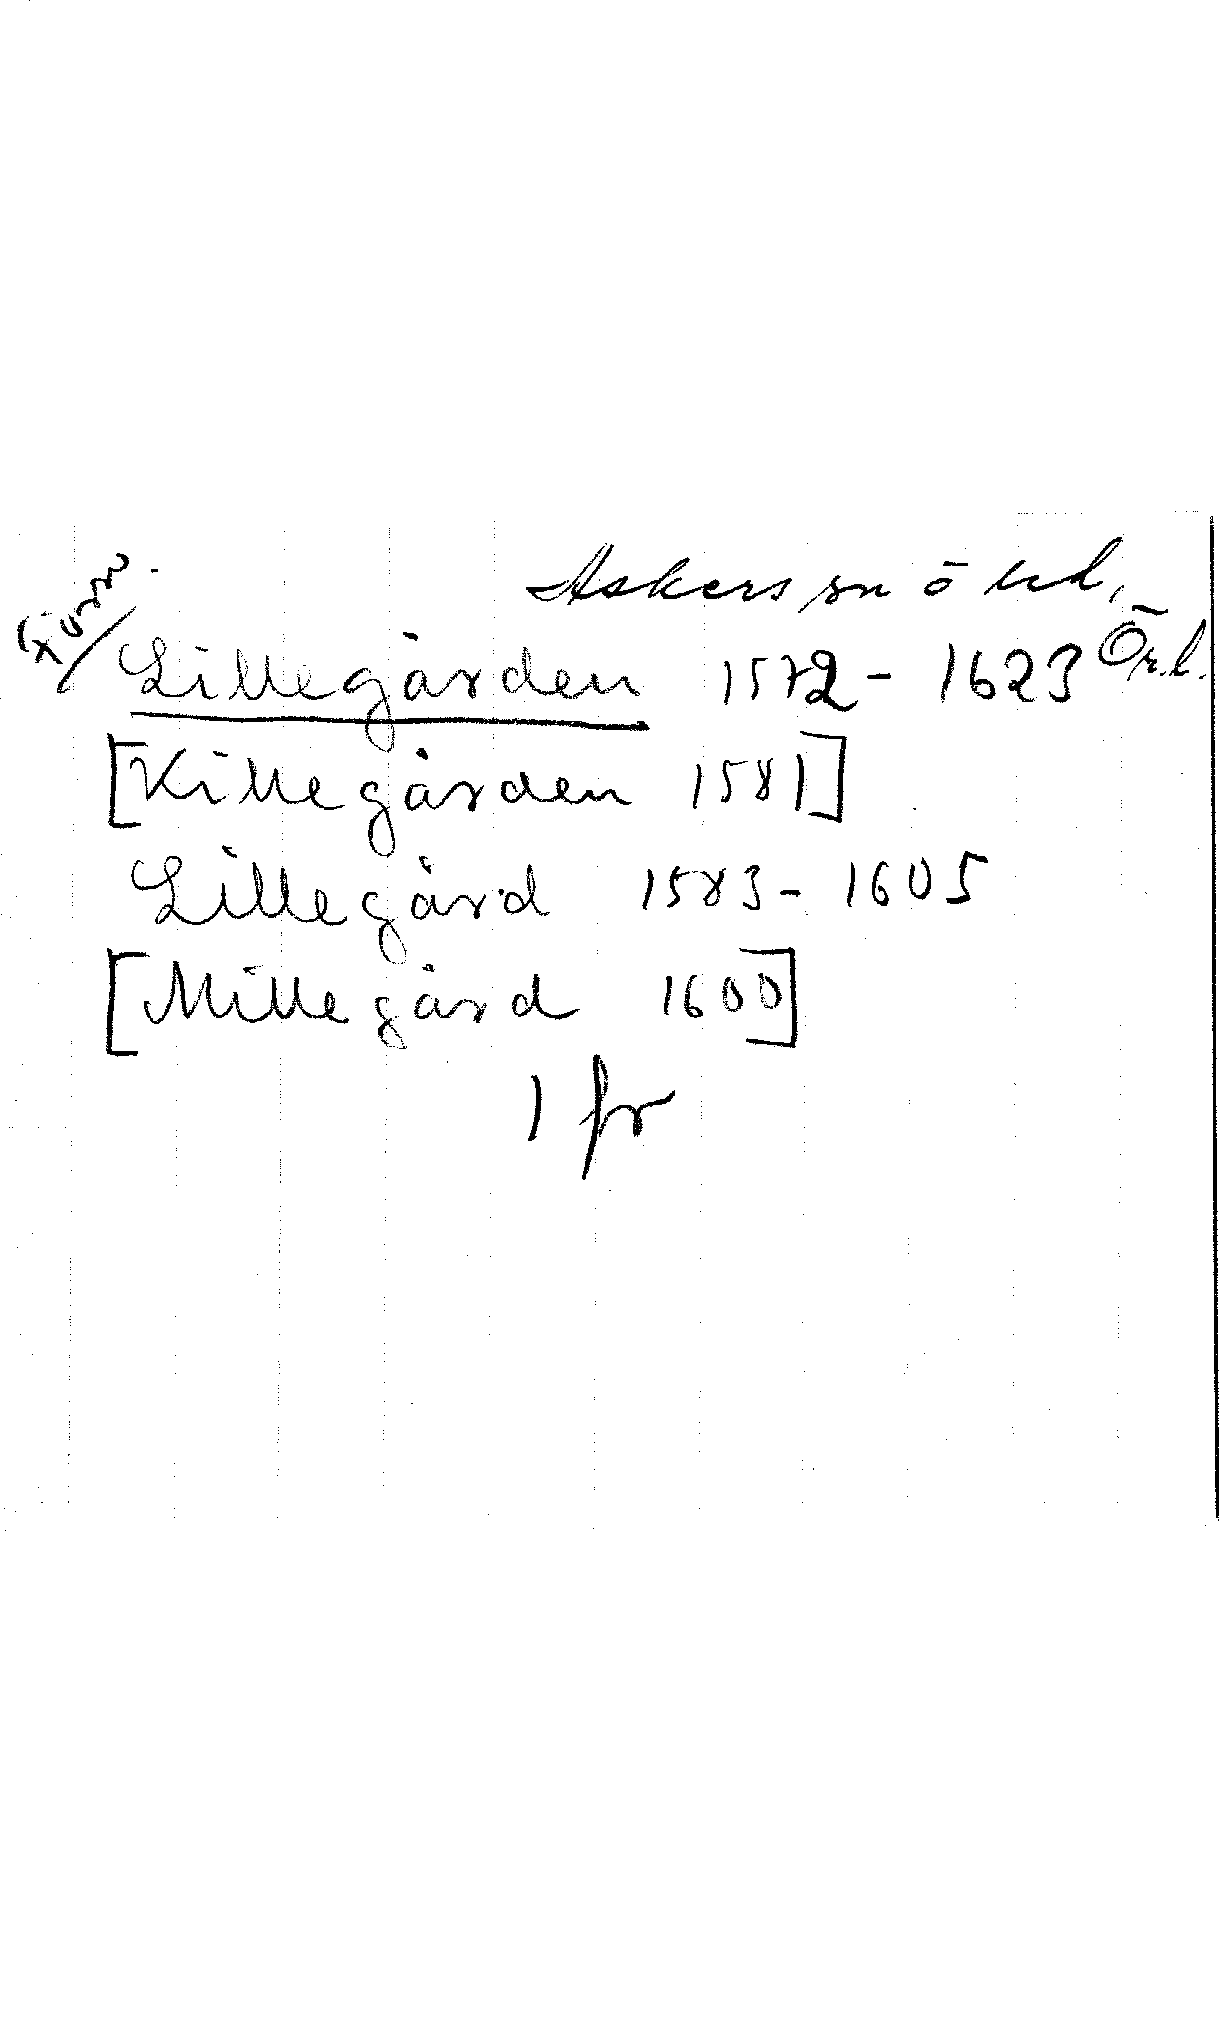 Askers sn o hd,
Försv.
Lillegården 1572 - 1623 Ör.l.
[Killegården 1581]
Lillegård 1583 - 1605
[Millegård 1600]
1 fr